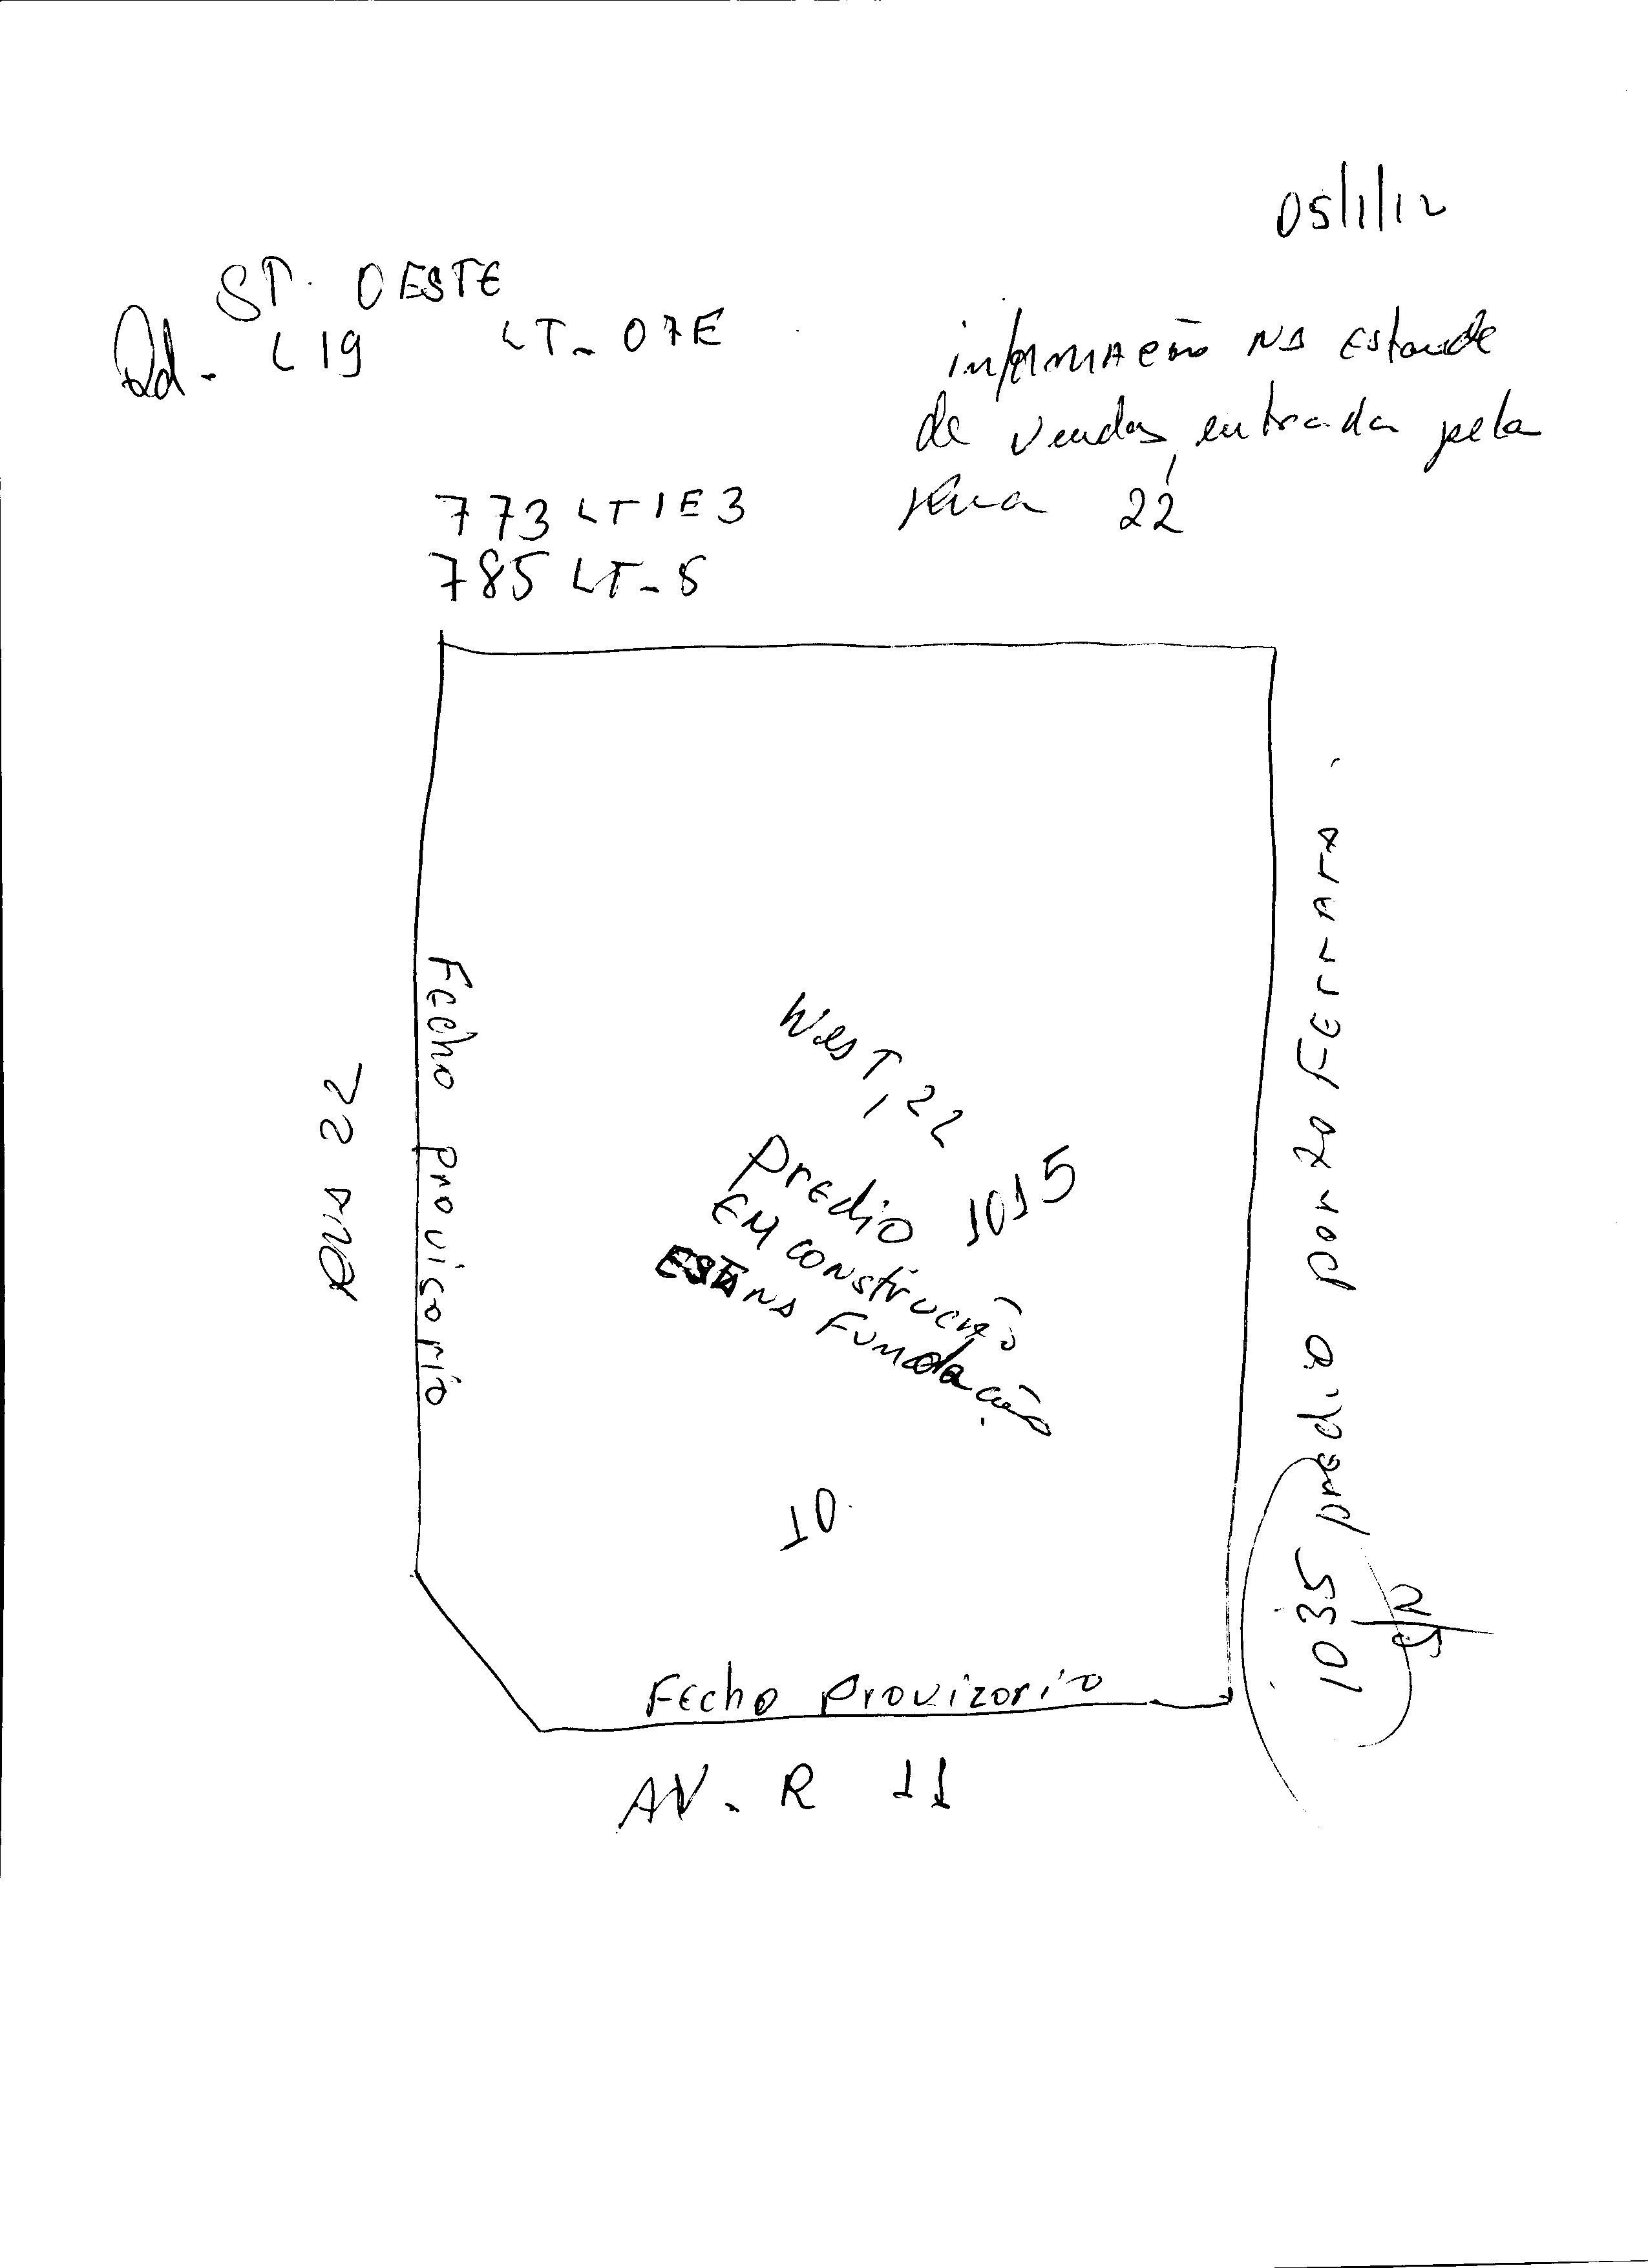 05/1/12
ST. OESTE
Qd. L19 LT- 07E
informação NA Estande
de vendas, entrada pela
Rua 22
773 LT 1 E 3
785 LT- 5
Fecho provisorio
RUA 22
West, 22
1015
predio
EM construção
ESTA NA Fundação
10
Fecho Provizorio
AV. R 11
1035 predio porto Ferrara.